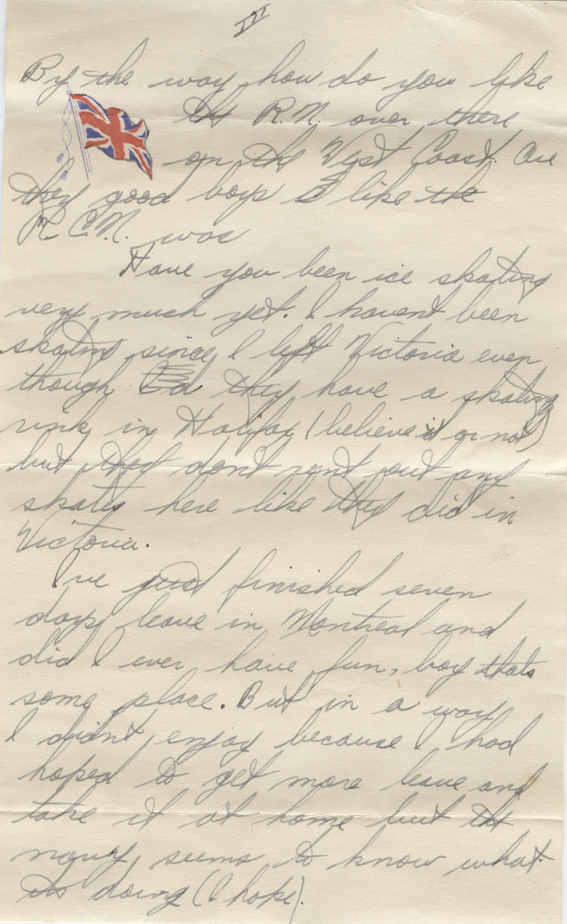 III
By the way how do you like
the R.N. over there
on the West Coast. Are
they good boys I like the
R.C.N. was
Have you been ice skating
very much yet. I havent been
skating since I left Victoria even
though they have a skating
rink in Halifax (believe it or not)
but they don't rent out any
skates here like they did in
Victoria.
I've just finished seven
days leave in Montreal and
did I ever have fun, boy thats
some place. But in a way
I didn't enjoy because I had
hoped to get more leave and
take it at home but the
navy seems to know what
its doing (I hope).